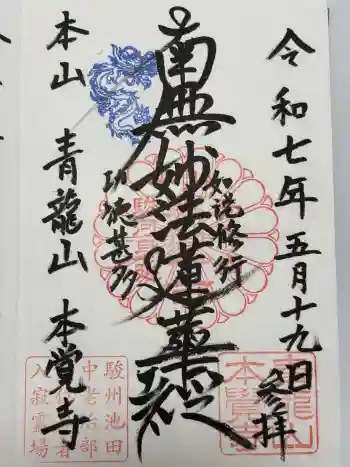 令和七年五月十九日
参拝
如説修行
南無妙法蓮華経
功徳甚多
本山 青龍山 本覚寺
駿州池田
中老治部
入寂霊場
青龍山
本覺寺